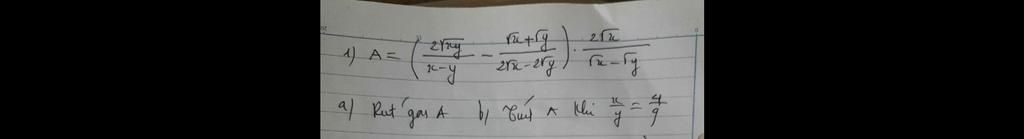 1) A = ( 2√xy / x-y - √x+√y / 2√x-2√y ) . 2√x / √x-√y
a) Rút gọn A b) Tính A khi x/y = 4/9